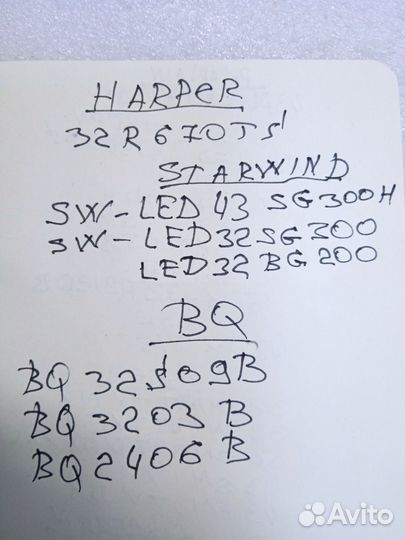 HARPER
32R670TS
STARWIND
SW-LED 43 SG300H
SW-LED32SG300
LED32 BG200
BQ
BQ 32S09B
BQ 3203 B
BQ 2406 B
Avito